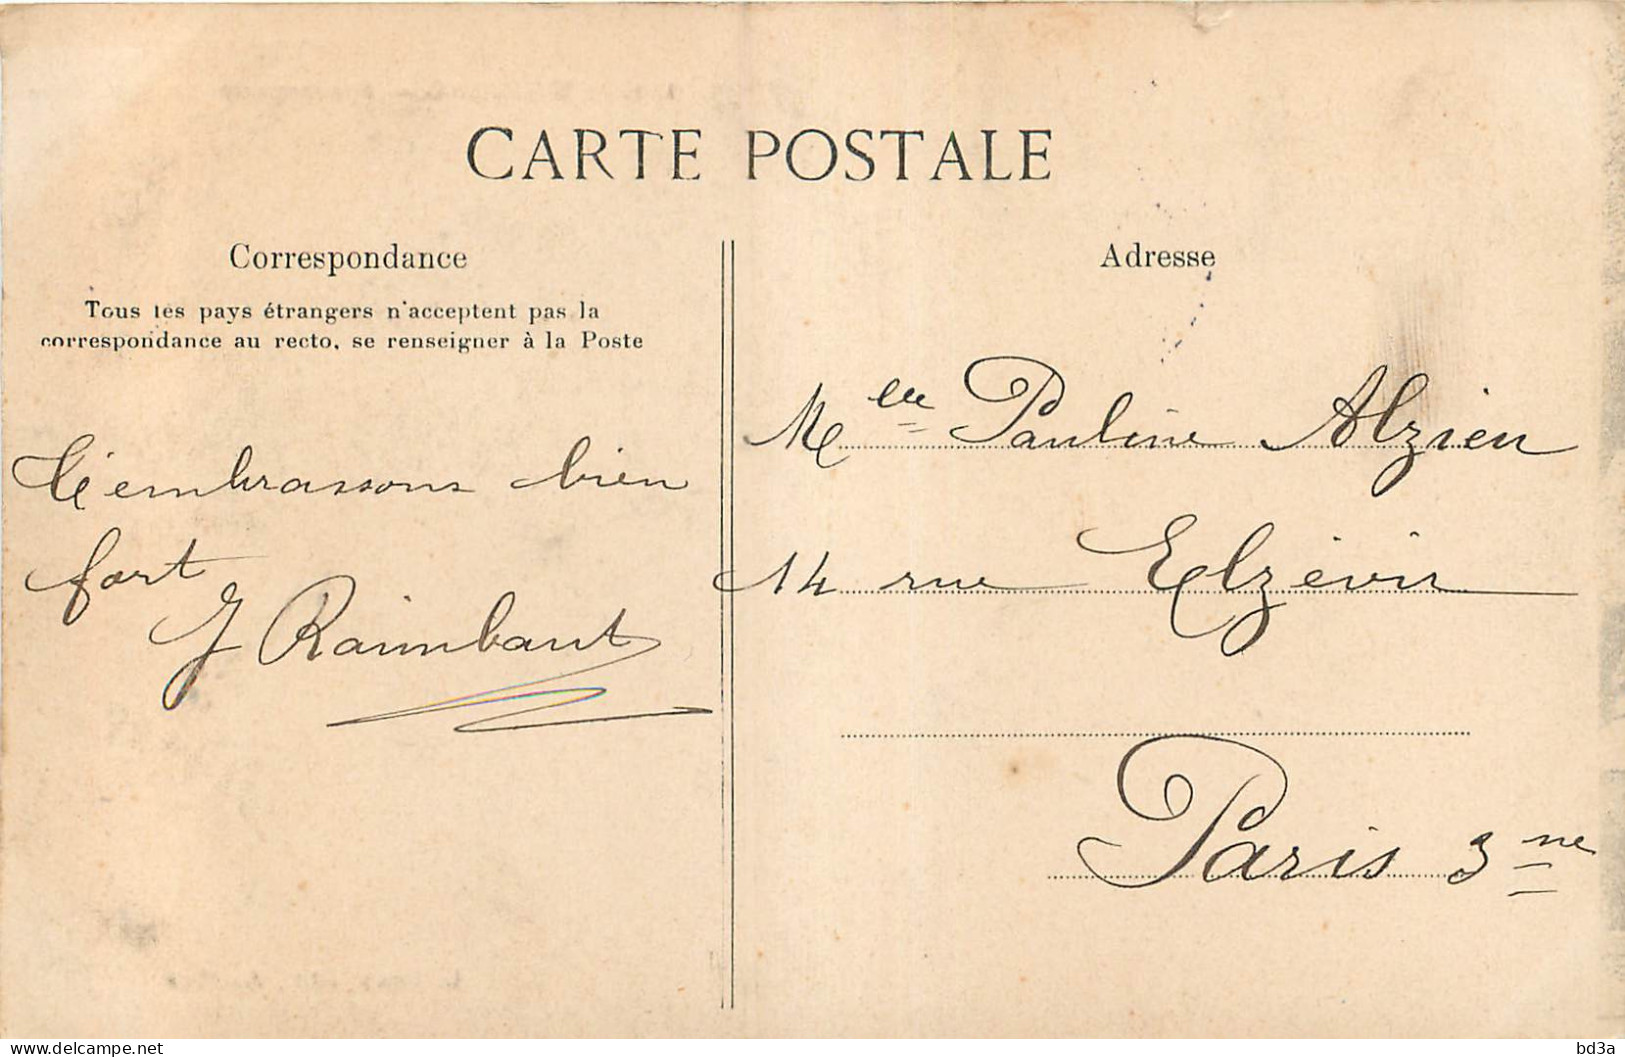 CARTE POSTALE
Correspondance
Tous les pays étrangers n'acceptent pas la
correspondance au recto, se renseigner à la Poste
t'embrassons bien
fort
J Raimbaut
Adresse
Melle Pauline Alzieu
14 rue Elzévir
Paris 3me
delcampe.net
bd3a